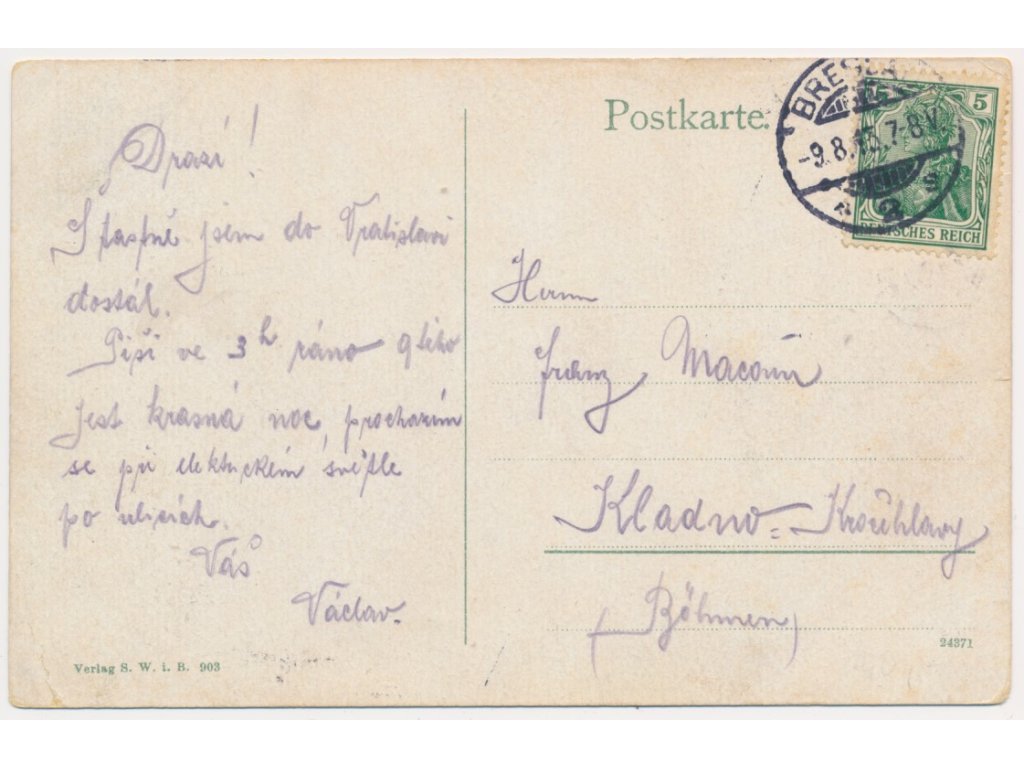 Postkarte.
BRESLA
-9.8.13.7-8V.
2
s
5
DEUTSCHES REICH
Drazí!
Šťastně jsem do Vratislavi
dostál.
Píši ve 3h ráno 9tého
jest krasná noc, procházím
se při elektrickém světle
po ulicích.
Váš
Václav.
Herrn
Franz Macoun
Kladno-Kročehlavy
(Böhmen)
Verlag S. W. i. B. 903
24371